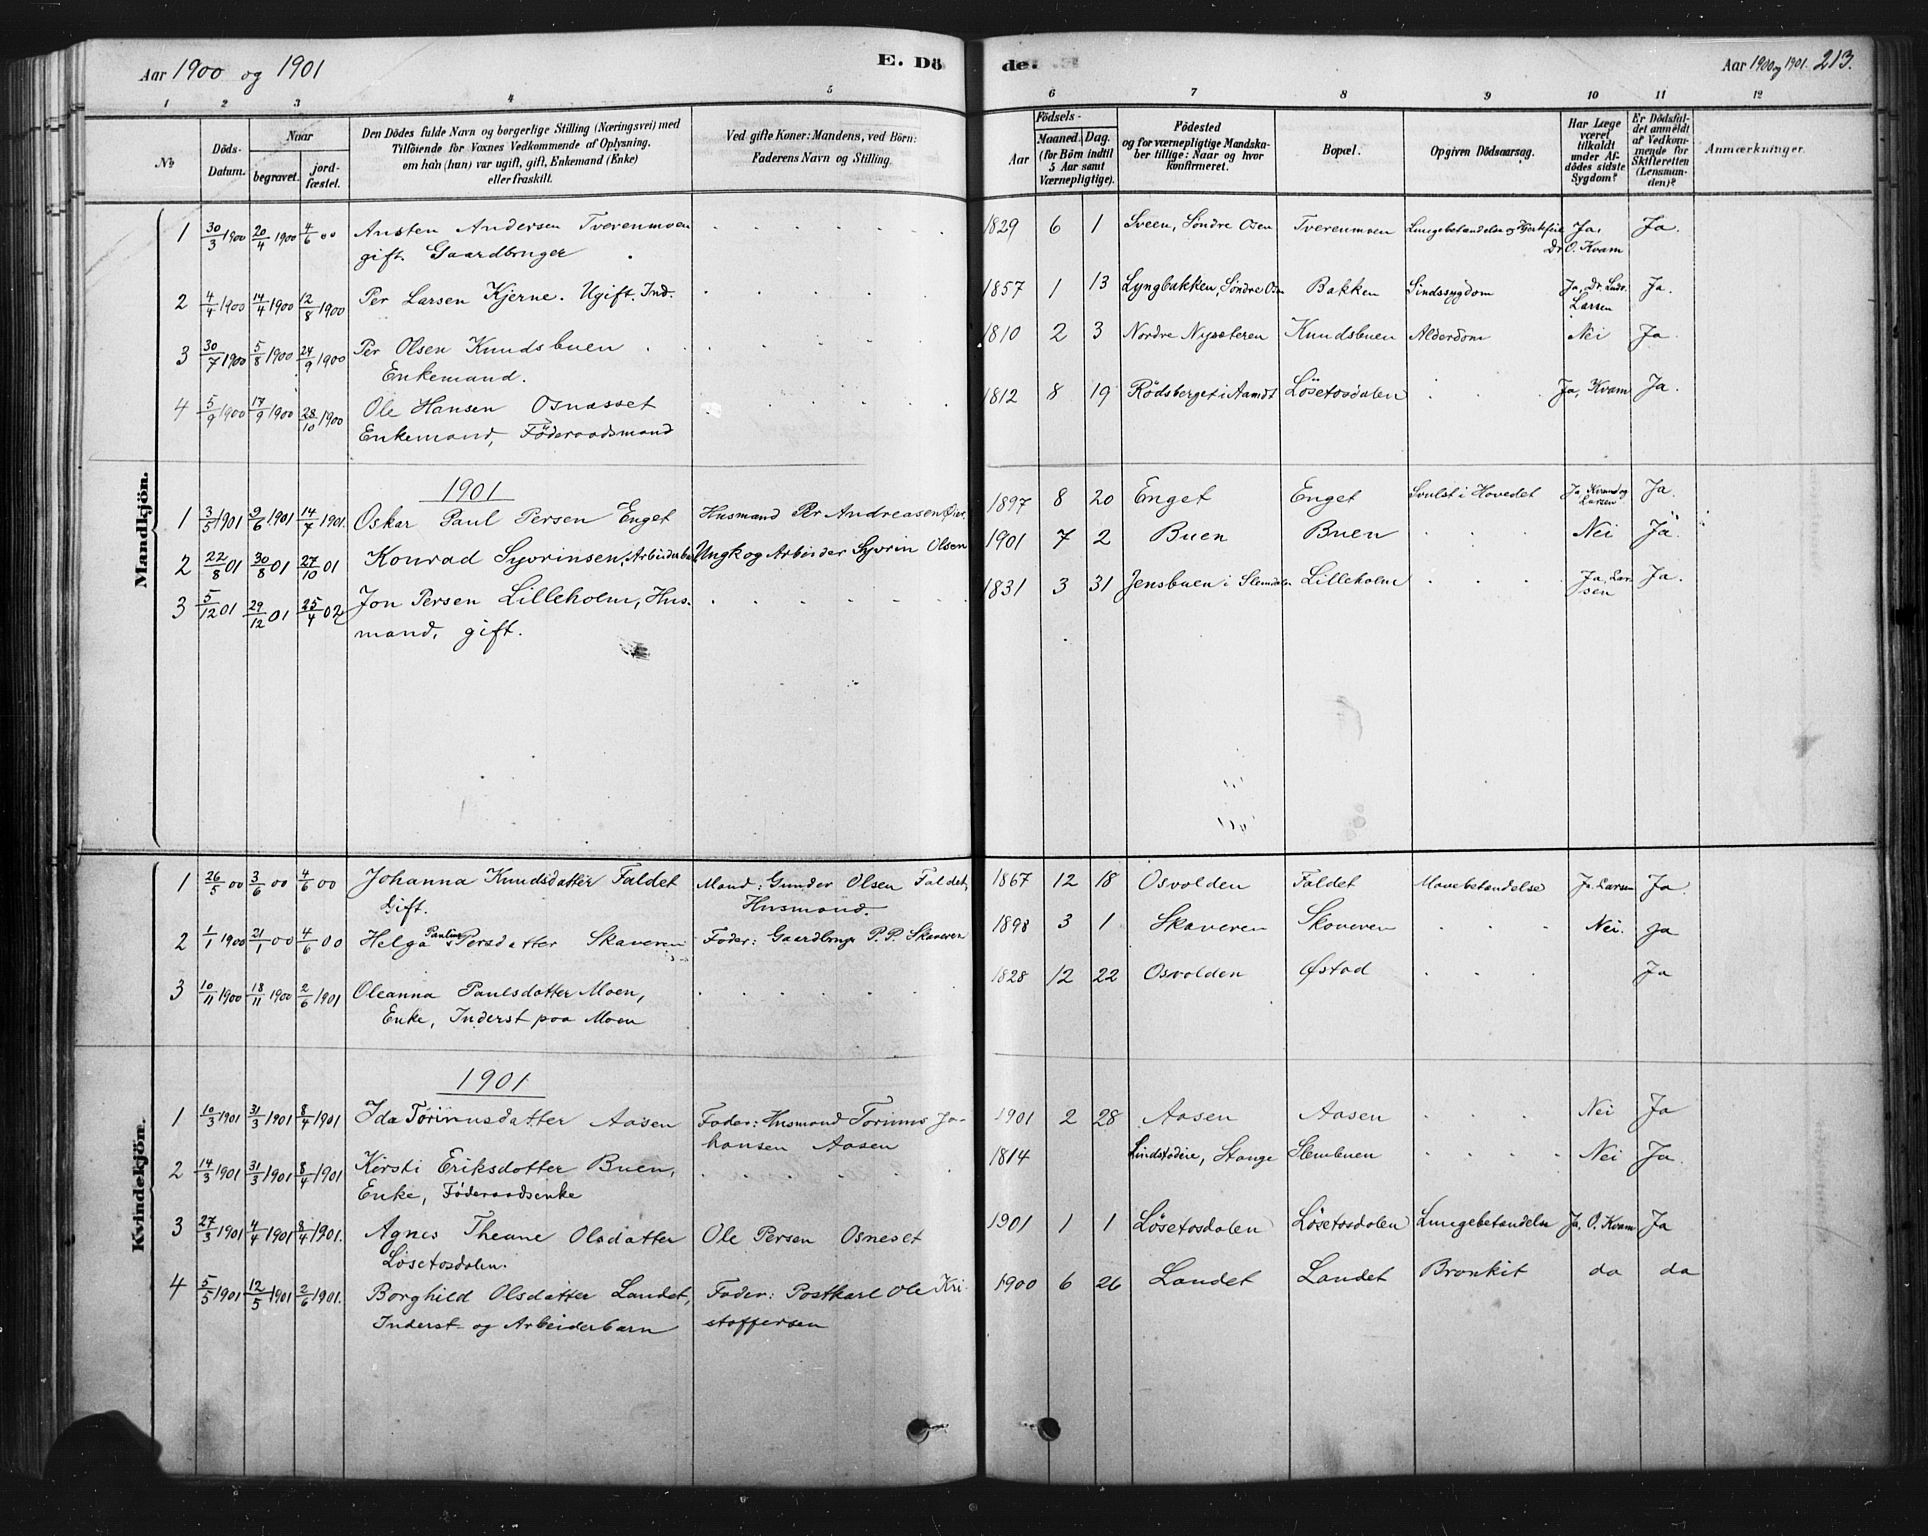 Aar 1900 og 1901
E. Dö
de.
Aar 1900 og 1901. 213.
1 2 3 4 5 6 7 8 9 10 11 12
No
Döds-Datum.
Naar
begravet.
jordfæstet.
Den Dödes fulde Navn og borgerlige Stilling (Næringsvei) med
Tilföiende for Voxnes Vedkommende af Oplysning,
om han (hun) var ugift, gift, Enkemand (Enke)
eller fraskilt.
Ved gifte Koner: Mandens, ved Börn:
Faderens Navn og Stilling.
Födsels-
Aar
Maaned. Dag.
(for Börn indtil
5 Aar samt
Værnepligtige).
Födested
og for værnepligtige Mandskaber tillige: Naar og hvor
konfirmeret.
Bopæl.
Opgiven Dödsaarsag.
Har Læge
været
tilkaldt
under Afdödes sidste
Sygdom?
Er Dödsfaldet anmeldt
af Vedkommende for
Skifteretten
(Lensmanden)?
Anmærkninger.
Mandkjön.
1 30/3 1900 20/4 1900 4/6 00 Austen Andersen Tverenmoen 1829 6 1 Sveen, Söndre Osen Tverenmoen Lungebetændelse og Hjertefeil Ja, Ja.
gift. Gaardbruger Dr O. Kvam
2 4/4 1900 14/4 1900 12/8 1900 Per Larsen Kjerne. Ugift. Ind. 1857 1 13 Lyngbakken, Söndre Osen Bakken Sindssygdom Ja, Dr. Ludv. Ja.
Larsen
3 30/7 1900 5/8 1900 24/9 1900 Per Olsen Knudsbuen 1810 2 3 Nordre Nysæteren Knudsbuen Alderdom Nei Ja.
Enkemand.
4 5/9 1900 17/9 1900 28/10 1900 Ole Hansen Osnæsset 1812 8 19 Rödsberget i Aamot Lösetosdalen Ja, Kvam Ja.
Enkemand, Föderaadsmand
1901
1 3/5 1901 9/6 1901 14/7 1901. Oskar Paul Persen Enget Husmand Per Andreasen 1897 8 20 Enget Enget Svulst i Hovedet Ja, Kvam og Ja.
Larsen
2 22/8 01 30/8 01 27/10 01 Konrad Syvrinsen, Arbeiderbarn Ungk. og Arbeider Syvrin Olsen 1901 7 2 Buen Buen Nei Ja.
3 5/12 01 29/12 01 25/4 02 Jon Persen Lilleholm, Hus- 1831 3 31 Jensbuen i Slemdalen Lilleholm Ja, Lar- Ja.
mand, gift. sen
Kvindekjön.
1 26/5 00 3/6 00 4/6 00 Johanna Knudsdatter Faldet Mand: Gunder Olsen Faldet, 1867 12 18 Osvolden Faldet Mavebetændelse Ja. Larsen Ja.
Gift. Husmand.
2 1/1 1900 21/1 00 4/6 00 Helga Pauline Persdatter Skaveren Fader: Gaardbruger P. P. Skaveren 1898 3 1 Skaveren Skaveren Nei. Ja
3 10/11 1900 18/11 1900 2/6 1901 Oleanna Paulsdatter Moen, 1828 12 22 Osvolden Østad Ja
Enke, Inderst paa Moen
1901
1 10/3 1901 31/3 1901 8/4 1901 Ida Törinusdatter Aasen Fader: Husmand Torinus Jo- 1901 2 28 Aasen Aasen Nei Ja
hansen Aasen
2 14/3 1901 31/3 1901 8/4 1901 Kirsti Eriksdatter Buen, 1814 Stange Slembuen Nei Ja.
Enke, Föderaadsenke
3 27/3 1901 4/4 1901 8/4 1901. Agnes Theane Olsdatter Ole Persen Osneset 1901 1 1 Lösetosdalen Lösetosdalen Lungebetændelse Ja, O. Kvam Ja
Lösetosdalen.
4 5/5 1901 12/5 1901 2/6 1901. Borghild Olsdatter Landet, Fader: Postkarl Ole Kri- 1900 6 26 Landet Landet Bronkit da da
Inderst- og Arbeiderbarn stoffersen